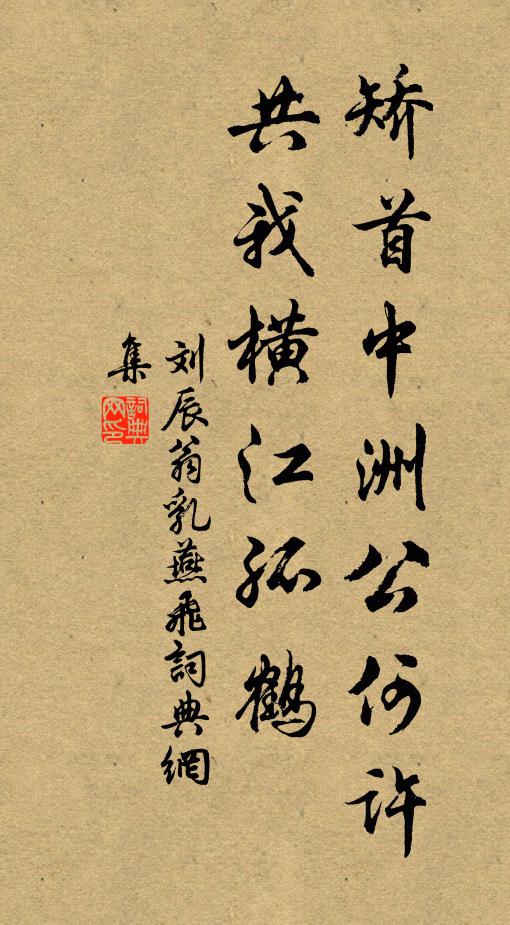 矫首中洲公何许
共我横江孤鹤
刘辰翁乳燕飛詞典網
集
詞典
网印